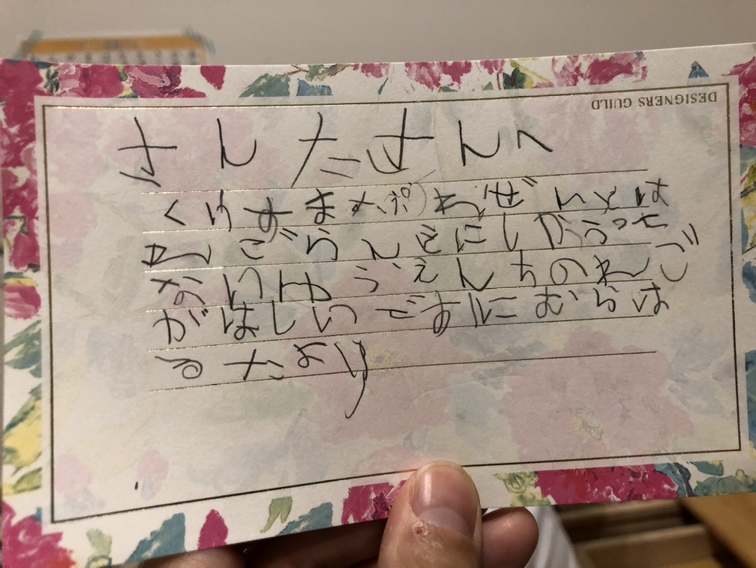 DESIGNERS GUILD
さんたさんへ
くりすますぷれぜんとは
れごらんどにしかうって
ないゆうえんちのれご
がほしいですにむらは
るたより